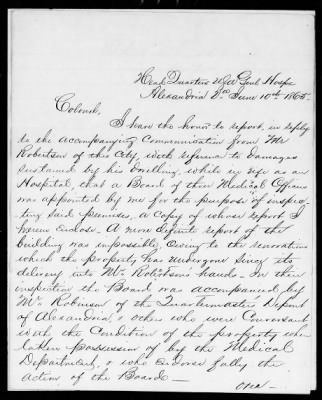 Head Quarters U.S.A. Genl Hosps
Alexandria Va June 10th 1865.
Colonel,
I have the honor to report, in reply
to the accompanying Communication from Mr
Robertson of this City, with reference to damages
sustained by his dwelling, while in use as an
Hospital, that a Board of three Medical Officers
was appointed by me for the purpose of inspec-
ting said premises, a copy of whose report I
herein enclose. A more definite report of the
building was impossible, owing to the renovations
which the property has undergone since its
delivery into Mr Robertson's hands. In their
inspection the Board was accompanied by
Mr Robinson of the Quartermasters Depmt
of Alexandria, & others who were Conversant
with the Condition of the property when
taken possession of by the Medical
Department, & who endorse fully the
action of the Board—